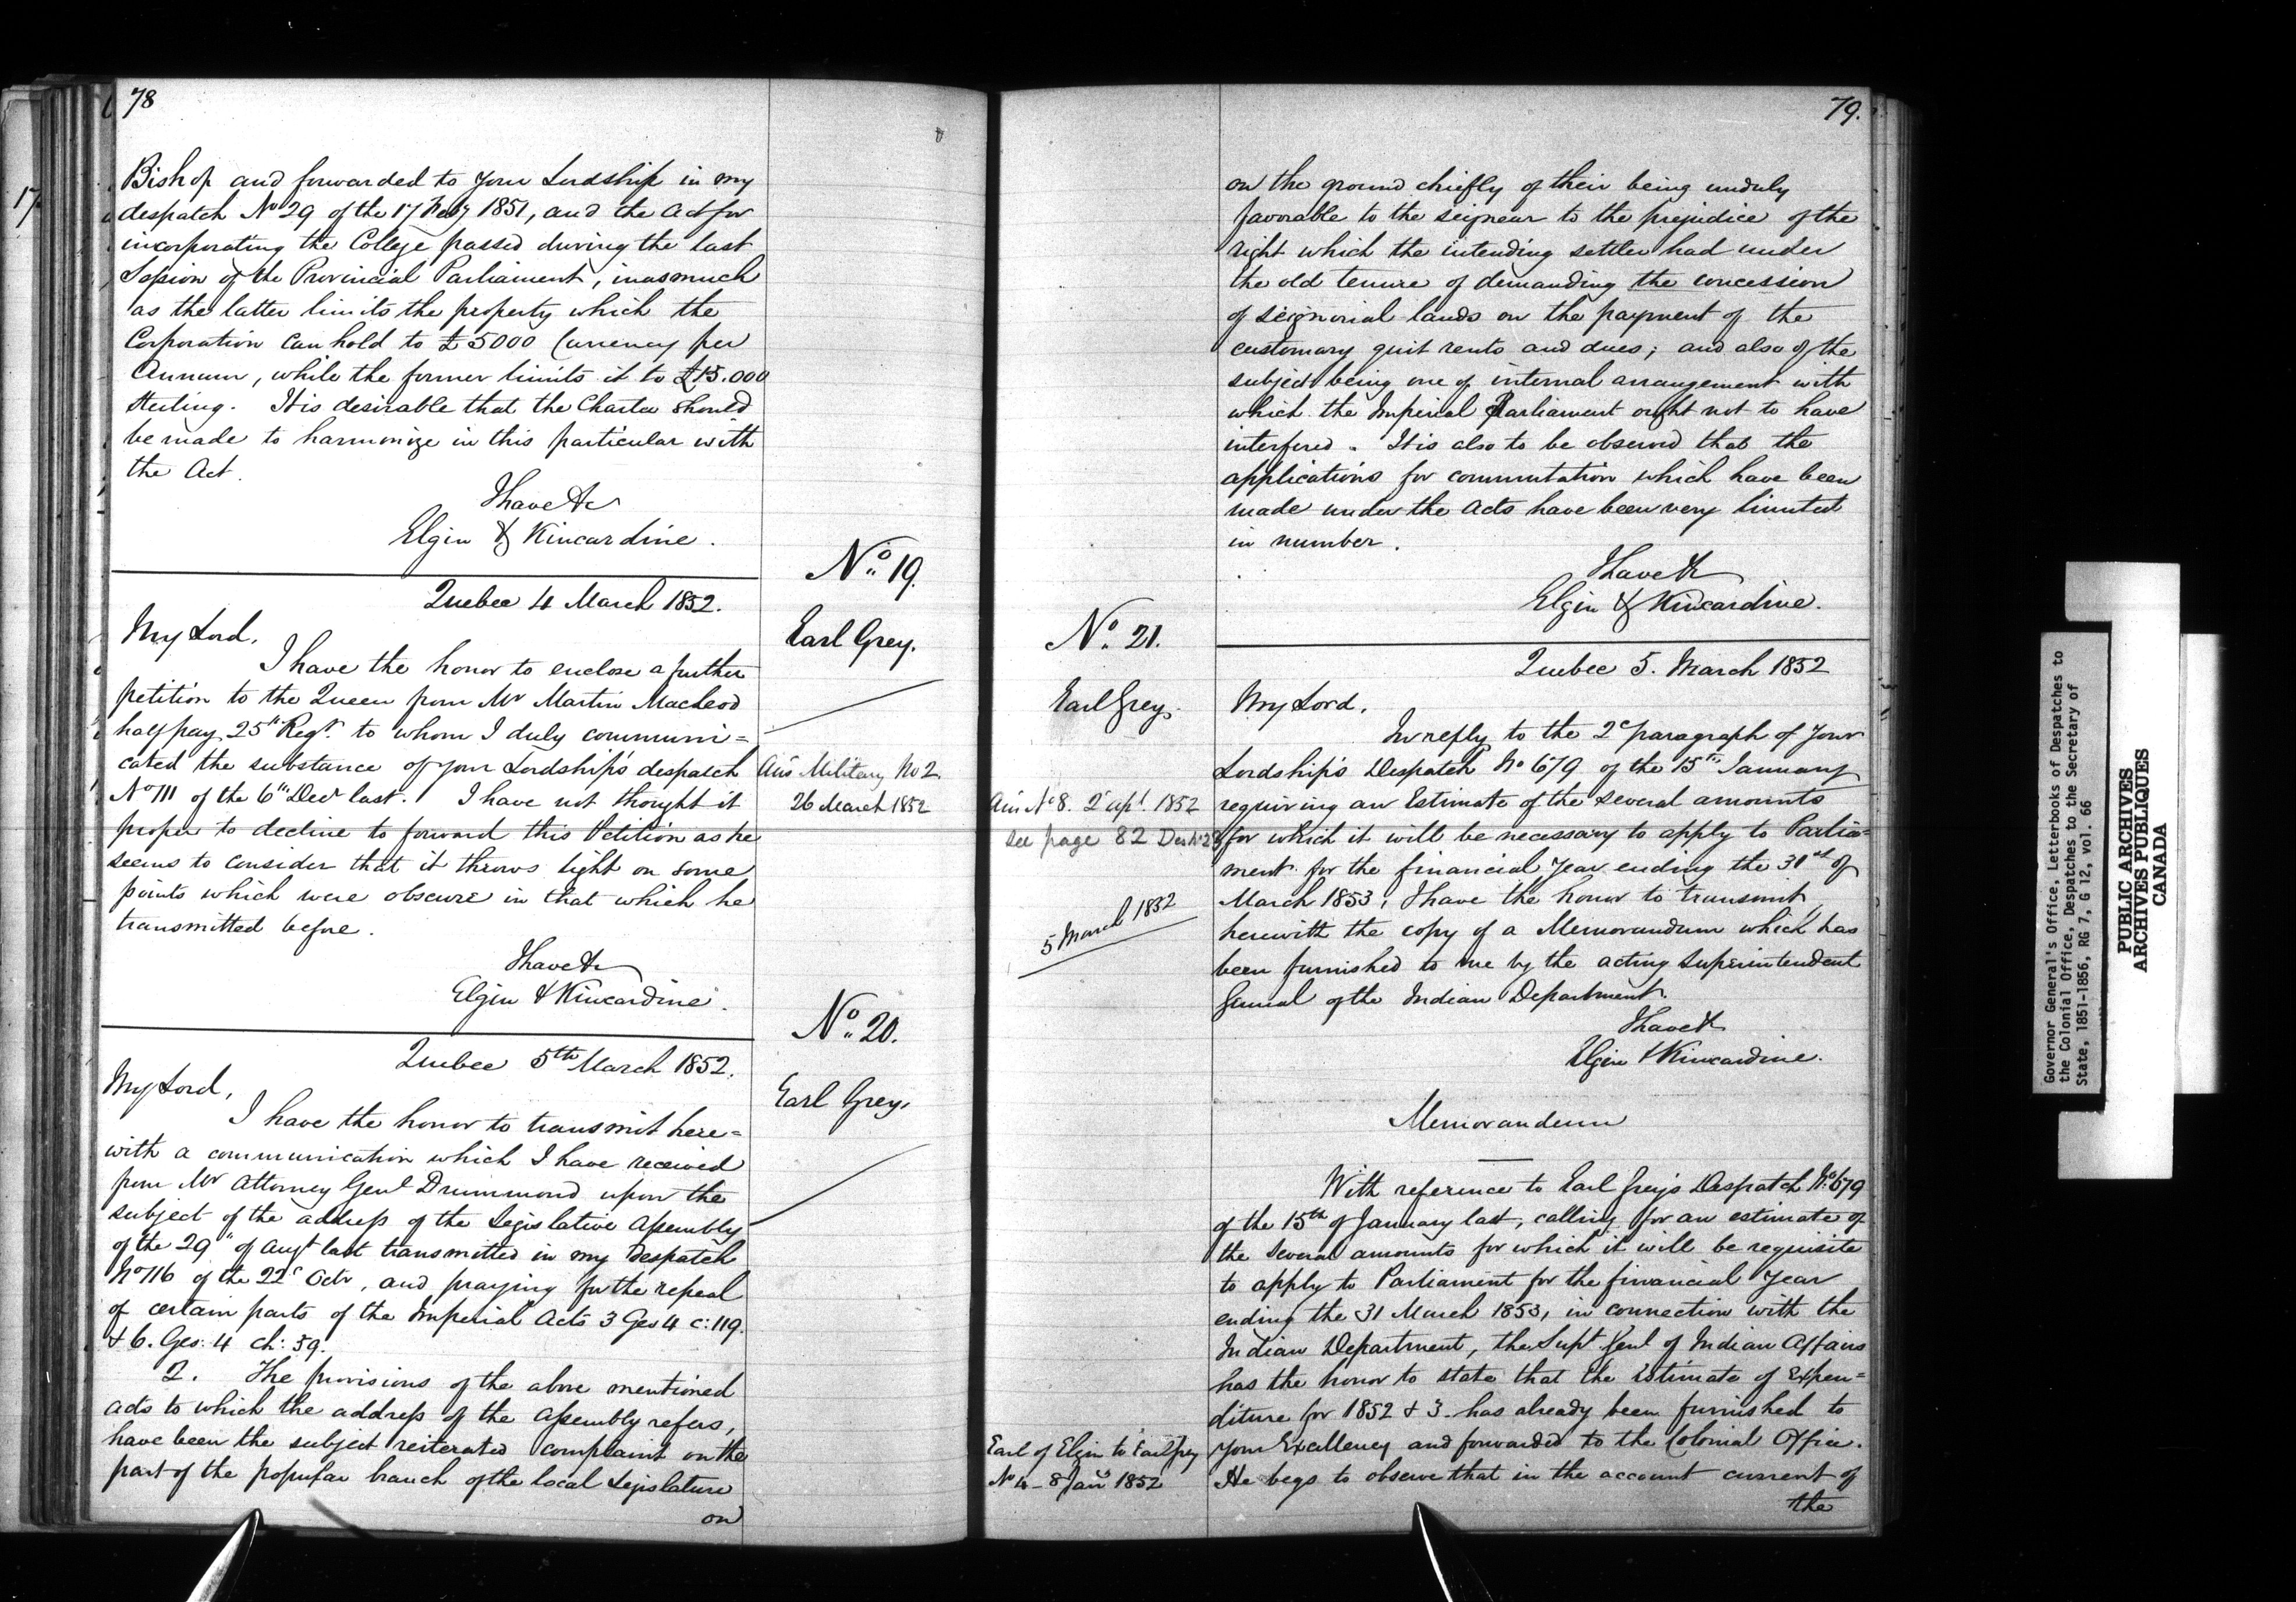 78
Bishop and forwarded to your Lordship in my
despatch No 29 of the 17 Feby 1851, and the Act for
incorporating the College passed during the last
Session of the Provincial Parliament, inasmuch
as the latter limits the property which the
Corporation can hold to £5000 Currency per
Annum, while the former limits it to £15.000
Sterling. It is desirable that the Charter should
be made to harmonize in this particular with
the Act.
I have &c
Elgin & Kincardine.
No. 19.
Earl Grey.
Quebec 4 March 1852.
My Lord,
I have the honor to enclose a further
petition to the Queen from Mr Martin MacLeod
half pay 25th Regt. to whom I duly communi=
cated the substance of your Lordship's despatch
No 711 of the 6th Decr last. I have not thought it
proper to decline to forward this Petition as he
seems to consider that it throws light on some
points which were obscure in that which he
transmitted before.
Ans Military No 2
26 March 1852
I have &c
Elgin & Kincardine.
No. 20.
Earl Grey,
Quebec 5th March 1852.
My Lord,
I have the honor to transmit here=
with a communication which I have received
from Mr Attorney Genl Drummond upon the
subject of the address of the Legislative Assembly
of the 29" of Augt last transmitted in my Despatch
No 116 of the 22d Octr, and praying for the repeal
of certain parts of the Imperial Acts 3 Geo 4 c: 119.
& 6. Geo: 4 ch: 59.
2. The provisions of the above mentioned
acts to which the address of the Assembly refers,
have been the subject reiterated complaint on the
part of the popular branch of the local Legislature
on
79.
on the ground chiefly of their being unduly
favorable to the seigneur to the prejudice of the
right which the intending settler had under
the old tenure of demanding the concession
of seignorial lands on the payment of the
customary quit rents and dues; and also of the
subject being one of internal arrangement with
which the Imperial Parliament ought not to have
interfered. It is also to be observed that the
applications for commutation which have been
made under the Acts have been very limited
in number.
I have &c
Elgin & Kincardine.
No. 21.
Earl Grey.
Quebec 5. March 1852
My Lord,
In reply to the 2d paragraph of your
Lordship's Despatch No 679 of the 15th January
requiring an Estimate of the several amounts
for which it will be necessary to apply to Parlia=
ment for the financial Year ending the 31st of
March 1853, I have the honor to transmit
herewith the copy of a Memorandum which has
been furnished to me by the acting Superintendent
General of the Indian Department.
Ans No 8. 2 Apl. 1852
See page 82
5 March 1852
I have &c
Elgin & Kincardine.
Memorandum
With reference to Earl Grey's Despatch No. 679
of the 15th of January last, calling for an estimate of
the several amounts for which it will be requisite
to apply to Parliament for the financial Year
ending the 31 March 1853, in connection with the
Indian Department, the Supt Genl of Indian Affairs
has the honor to state that the Estimate of Expen=
diture for 1852 & 3. has already been furnished to
your Excellency and forwarded to the Colonial Office.
He begs to observe that in the account current of
the
Earl of Elgin to Earl Grey
No 4 - 8 Jany 1852
17
Governor General's Office, Letterbooks of Despatches to
the Colonial Office, Despatches to the Secretary of
State, 1851-1856, RG 7, G 12, vol. 66
PUBLIC ARCHIVES
ARCHIVES PUBLIQUES
CANADA